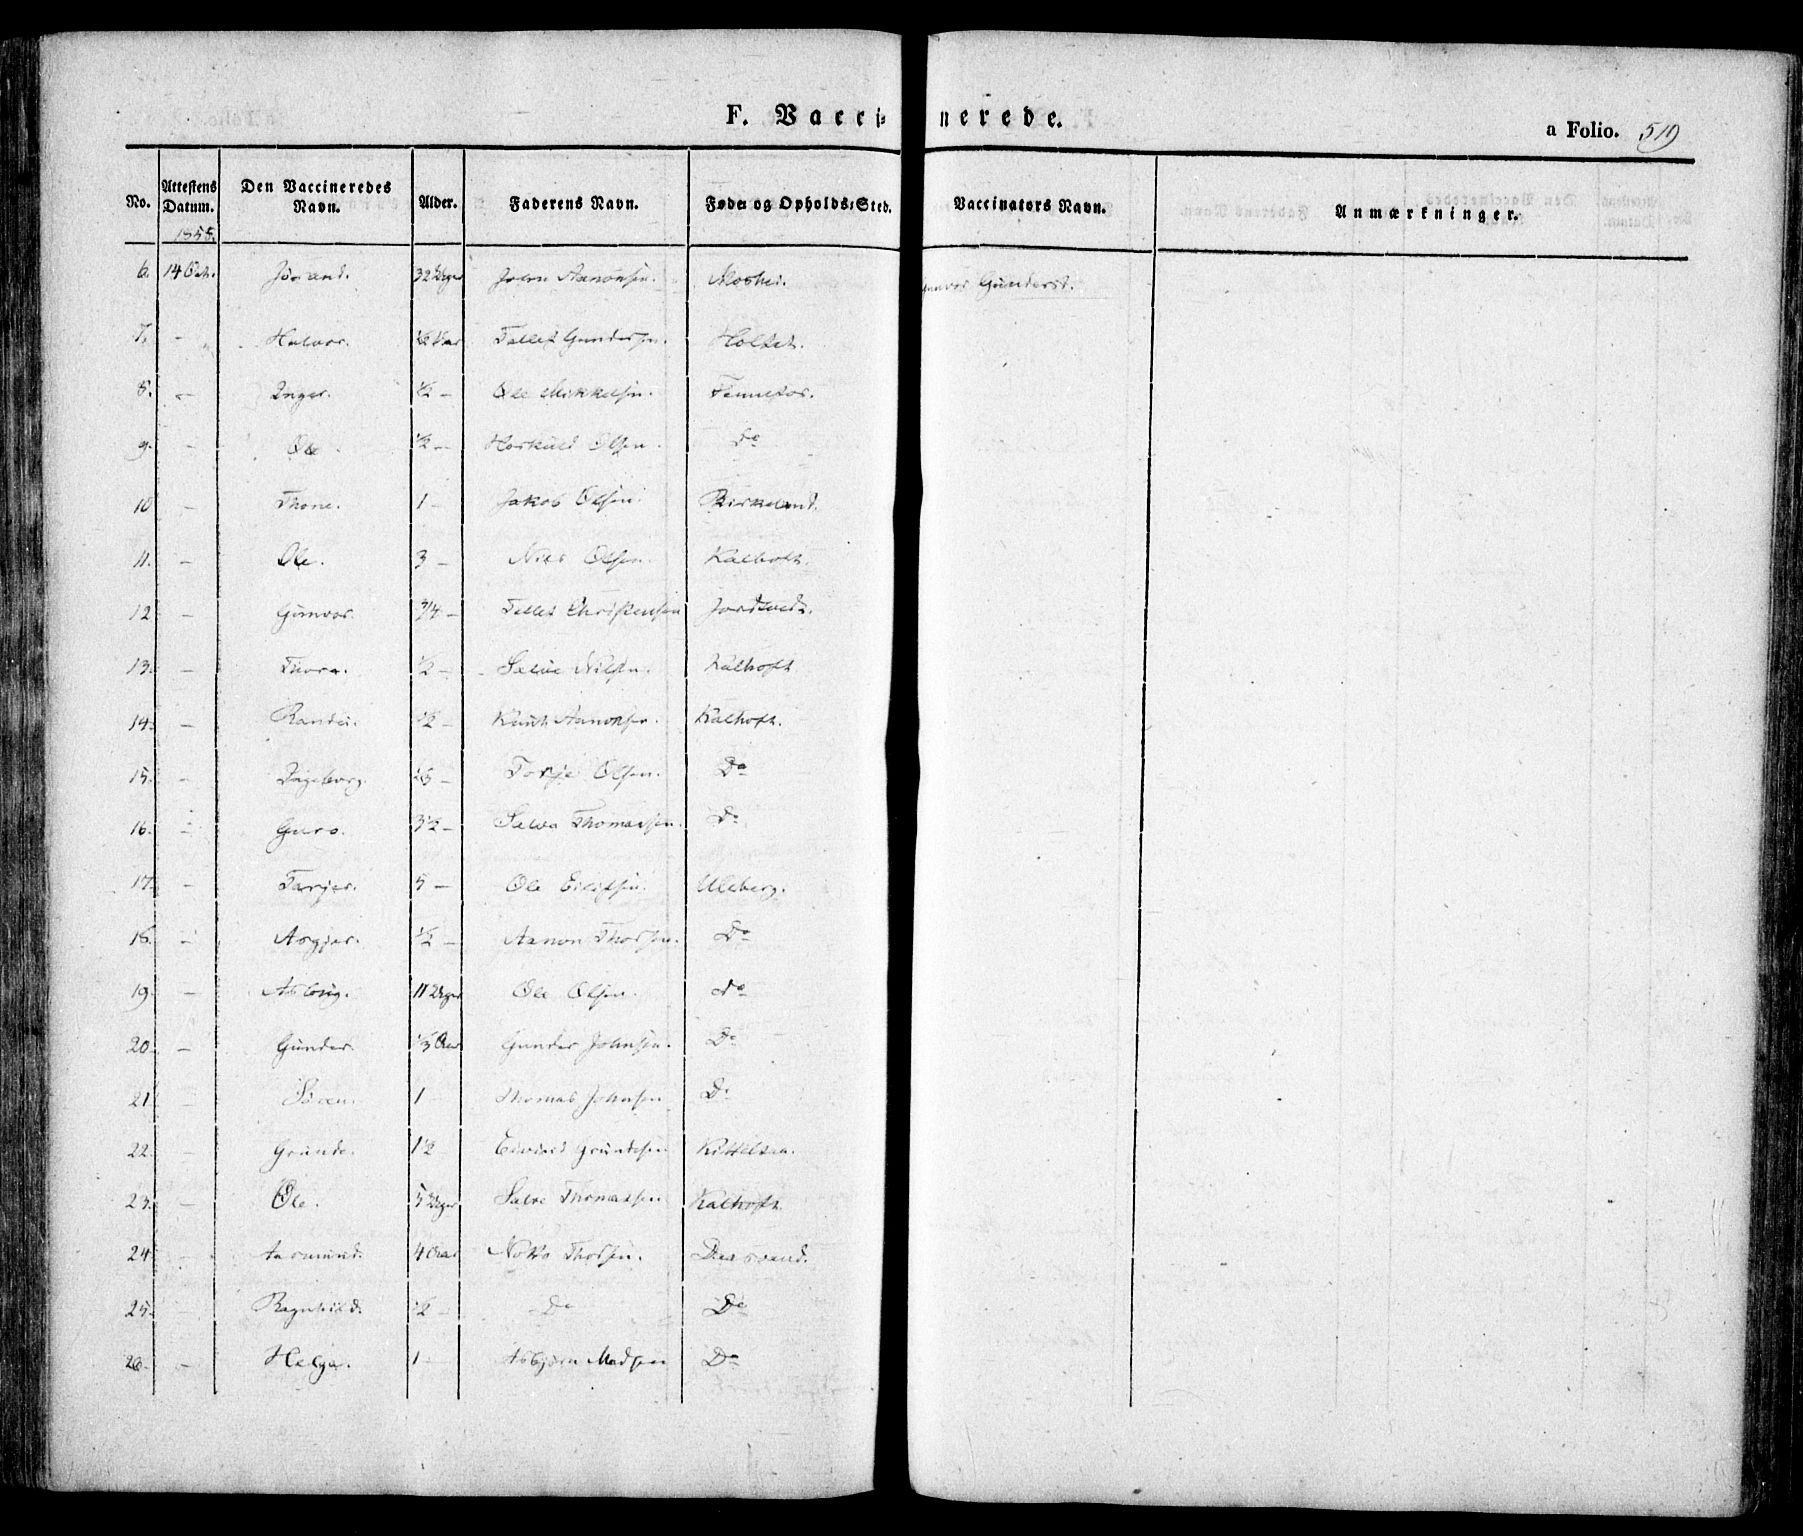 F. Vacci= nerede.
a Folio. 519
No. Attestens Datum. Den Vaccineredes Navn. Alder. Faderens Navn. Føde- og Opholds-Sted. Vaccinators Navn. Anmærkninger.
1858.
6. 14 Oct. Jørand. 32 Uger John Aanonsen. Moshei. Gunvor Gunderst.
7. - Halvor. 1/2 Aar Tellef Gundersen. Holtet.
8. - Inger. 1/2 - Ole Mikkelsen.
9. - Ole. 1/2 - Olsen. do
10 - Thone. 1 - Jakob Olsen. Birkeland.
11. - Ole. 3 - Niels Olsen. Kalhoft.
12 - Gunvor. 3/4 - Tellef Christensen
13. - Thora. 1/2 - Salve Nilsen. Kalhoft
14. - Randei. 1/2 - Knut Aanonsen. Kalhoft.
15. - Ingeborg. - Terje Olsen. Do
16. - Guro. 3 1/2 - Salve Thomassen. Do
17. - Tarjer. 5 - Ole Eilefsen. Uleberg.
18. - Asgjer. 1/2 - Aanon Thorsen. Do
19. - Asborg. 11 Uger Ole Olsen. do
20. - Gunder. 1/3 Aar Gunder Johnsen. Do
21 Søren. 1 - Thomas Johnsen Do
22. - Grunde. 1 1/2 Eivind Grundesen
23. - Ole. 5 Uger Salve Thomassen Kalhoft.
24 - Aasmund. 4 Aar Thorsen. Daasvand.
25. - Ragnhild. 1/2 - Do Do
26. - Helga. 1 - Asbjørn Madsen Do